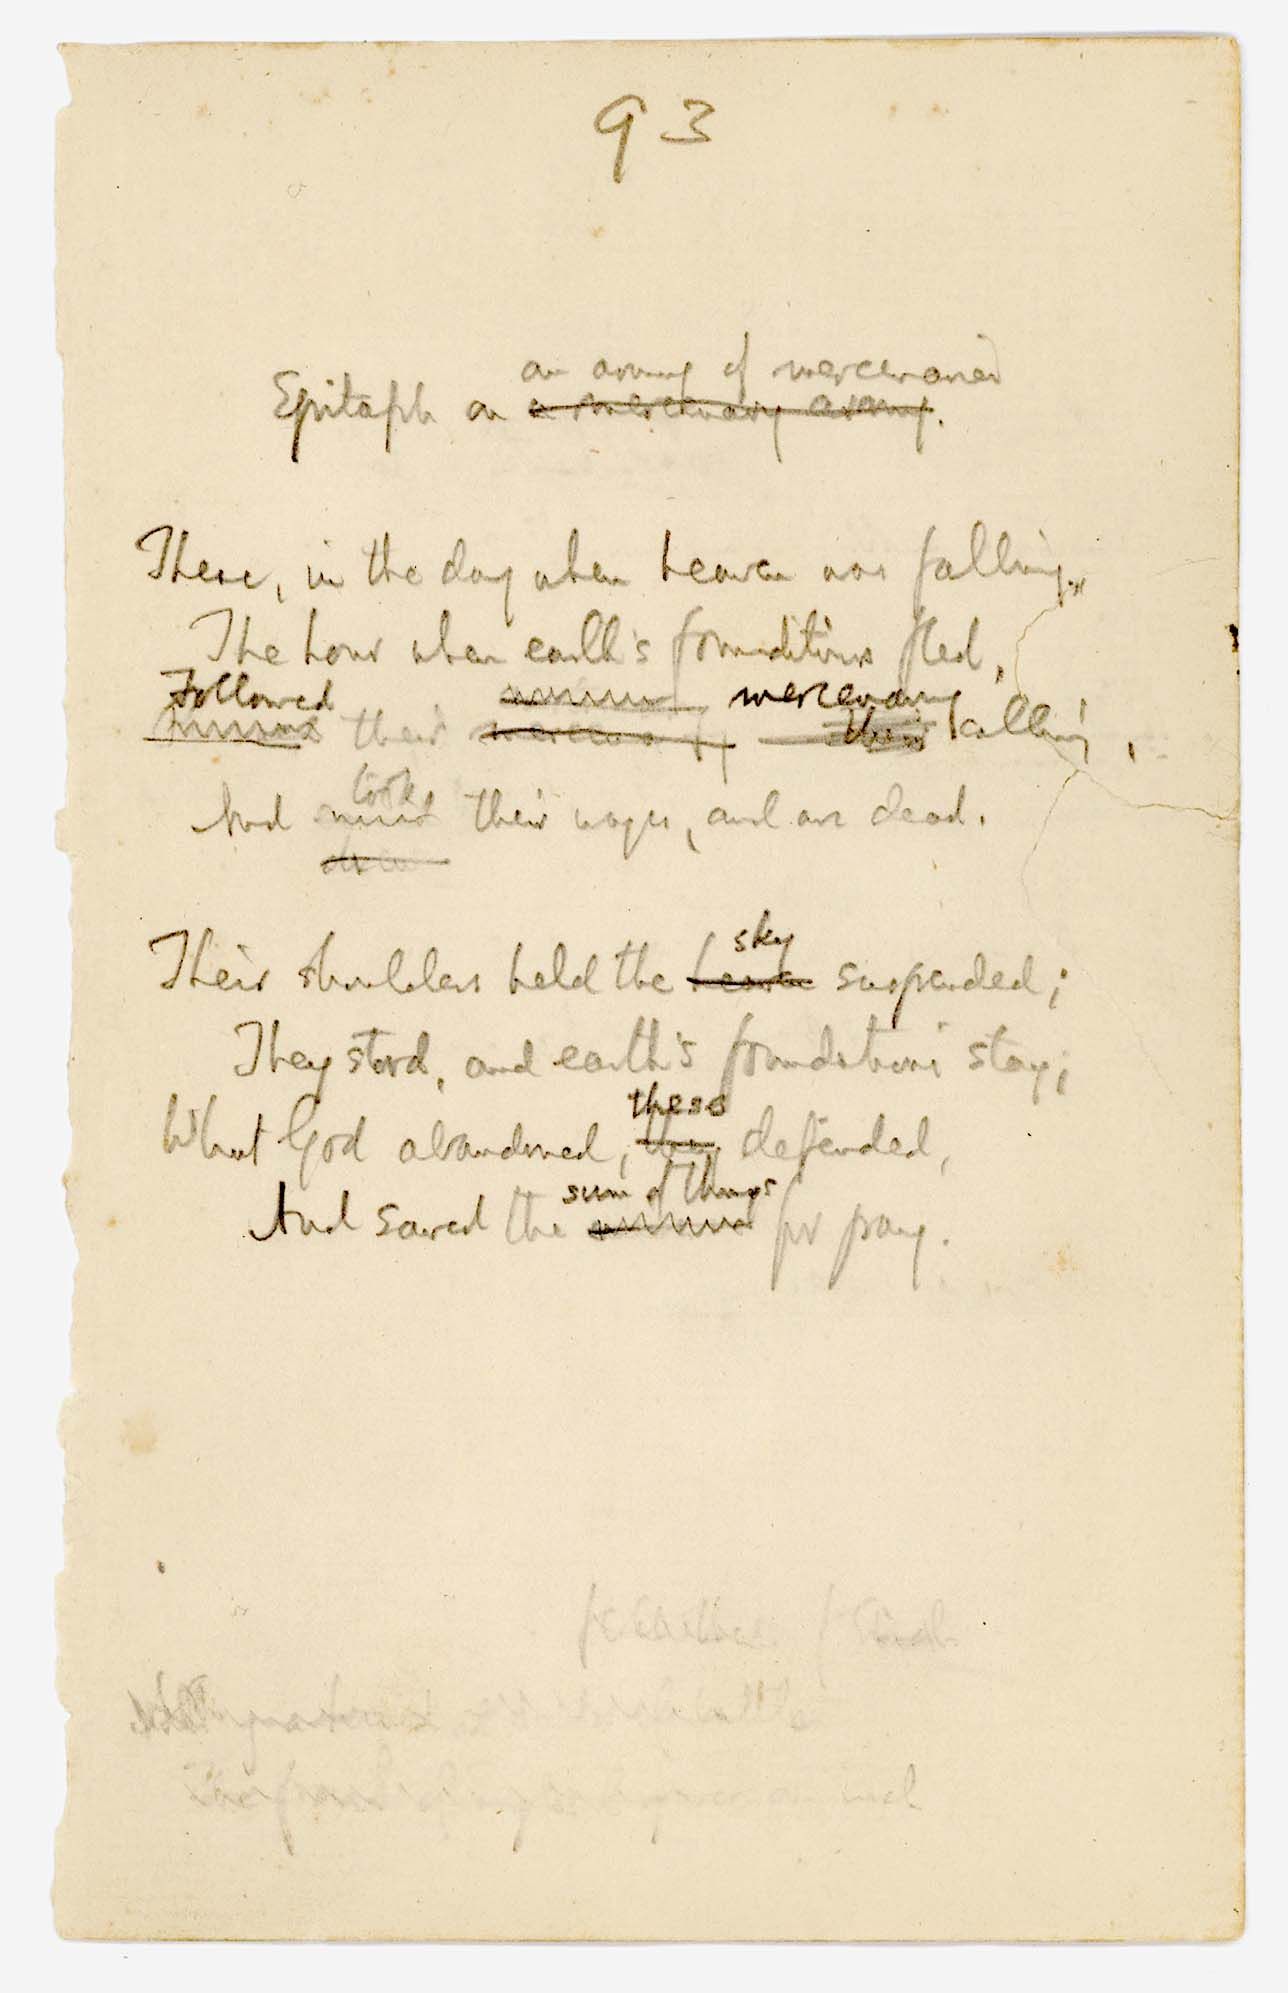 93
an army of mercenaries
Epitaph on a mercenary army.
These, in the day when heaven was falling,
The hour when earth's foundations fled,
Followed mercenary
their mercenary their calling,
took
And their wages, and are dead.
drew
sky
Their shoulders held the heaven suspended;
They stood, and earth's foundations stay;
these
What God abandoned, they defended,
sum of things
And saved the for pay.